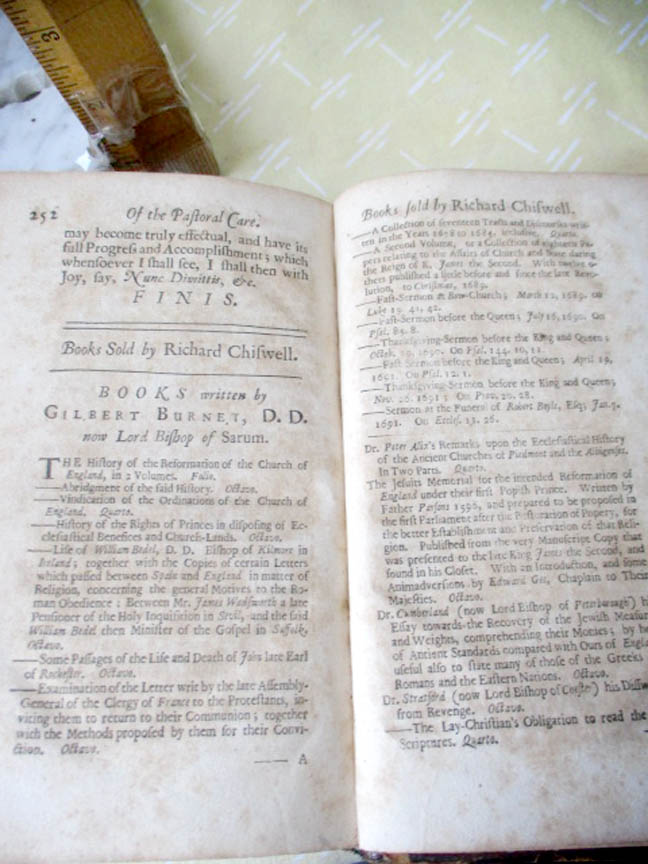 252 Of the Paſtoral Care.
may become truly effectual, and have its
full Progreſs and Accompliſhment; which
whenſoever I ſhall ſee, I ſhall then with
Joy, ſay, Nunc Dimittis, &c.
FINIS.
Books Sold by Richard Chiſwell.
BOOKS written by
GILBERT BURNET, D. D.
now Lord Biſhop of Sarum.
THE Hiſtory of the Reformation of the Church of
England, in 2 Volumes. Folio.
—Abridgment of the ſaid Hiſtory. Octavo.
—Vindication of the Ordinations of the Church of
England. Quarto.
—Hiſtory of the Rights of Princes in diſpoſing of Ec-
cleſiaſtical Benefices and Church-Lands. Octavo.
—Life of William Bedel, D. D. Biſhop of Kilmore in
Ireland; together with the Copies of certain Letters
which paſſed between Spain and England in matter of
Religion, concerning the general Motives to the Ro-
man Obedience: Between Mr. James Wadſworth a late
Penſioner of the Holy Inquiſition in Sevil, and the ſaid
William Bedel then Miniſter of the Goſpel in Suffolk,
Octavo.
—Some Paſſages of the Life and Death of John late Earl
of Rocheſter. Octavo.
—Examination of the Letter writ by the late Aſſembly-
General of the Clergy of France to the Proteſtants, in-
viting them to return to their Communion; together
with the Methods propoſed by them for their Convi-
ction. Octavo.
—— A
Books ſold by Richard Chiſwell.
—A Collection of ſeventeen Tracts and Diſcourſes writ-
ten in the Years 1678 to 1685. incluſive, Quarto.
—A Second Volume, or a Collection of eighteen Pa-
pers relating to the Affairs of Church and State during
the Reign of K. James the Second. With twelve o-
thers publiſhed a little before and ſince the late Revo-
lution, to Chriſtmas, 1689.
—Faſt-Sermon at Bow-Church; March 12, 1689. on
Luke 19. 41, 42.
—Faſt-Sermon before the Queen; July 16, 1690. On
Pſal. 85. 8.
—Thankſgiving-Sermon before the King and Queen;
Octob. 19. 1690. On Pſal. 144. 10, 11.
—Faſt Sermon before the King and Queen; April 29,
1691. On Pſal. 12. 1.
—Thankſgiving-Sermon before the King and Queen;
Nov. 26. 1691. On Prov. 20. 28.
—Sermon at the Funeral of Robert Boyle, Eſq; Jan. 7.
1691. On Eccleſ. 2. 26.
Dr. Peter Allix's Remarks upon the Eccleſiaſtical Hiſtory
of the Ancient Churches of Piedmont and the Albigenſes.
In Two Parts. Quarto.
The Jeſuits Memorial for the intended Reformation of
England under their firſt Popiſh Prince. Written by
Father Parſons 1596, and prepared to be propoſed in
the firſt Parliament after the Reſtoration of Popery, for
the better Eſtabliſhment and Preſervation of that Reli-
gion. Publiſhed from the very Manuſcript Copy that
was preſented to the late King James the Second, and
found in his Cloſet. With an Introduction, and ſome
Animadverſions by Edward Gee, Chaplain to Their
Majeſties. Octavo.
Dr. Cumberland (now Lord Biſhop of Peterborough) hi
Eſſay towards the Recovery of the Jewiſh Meaſur
and Weights, comprehending their Monies; by he
of Antient Standards compared with Ours of Engla
uſeful alſo to ſtate many of thoſe of the Greeks
Romans and the Eaſtern Nations. Octavo.
Dr. Stratford (now Lord Biſhop of Cheſter) his Diſſwa
from Revenge. Octavo.
—The Lay-Chriſtian's Obligation to read the
Scriptures. Quarto.